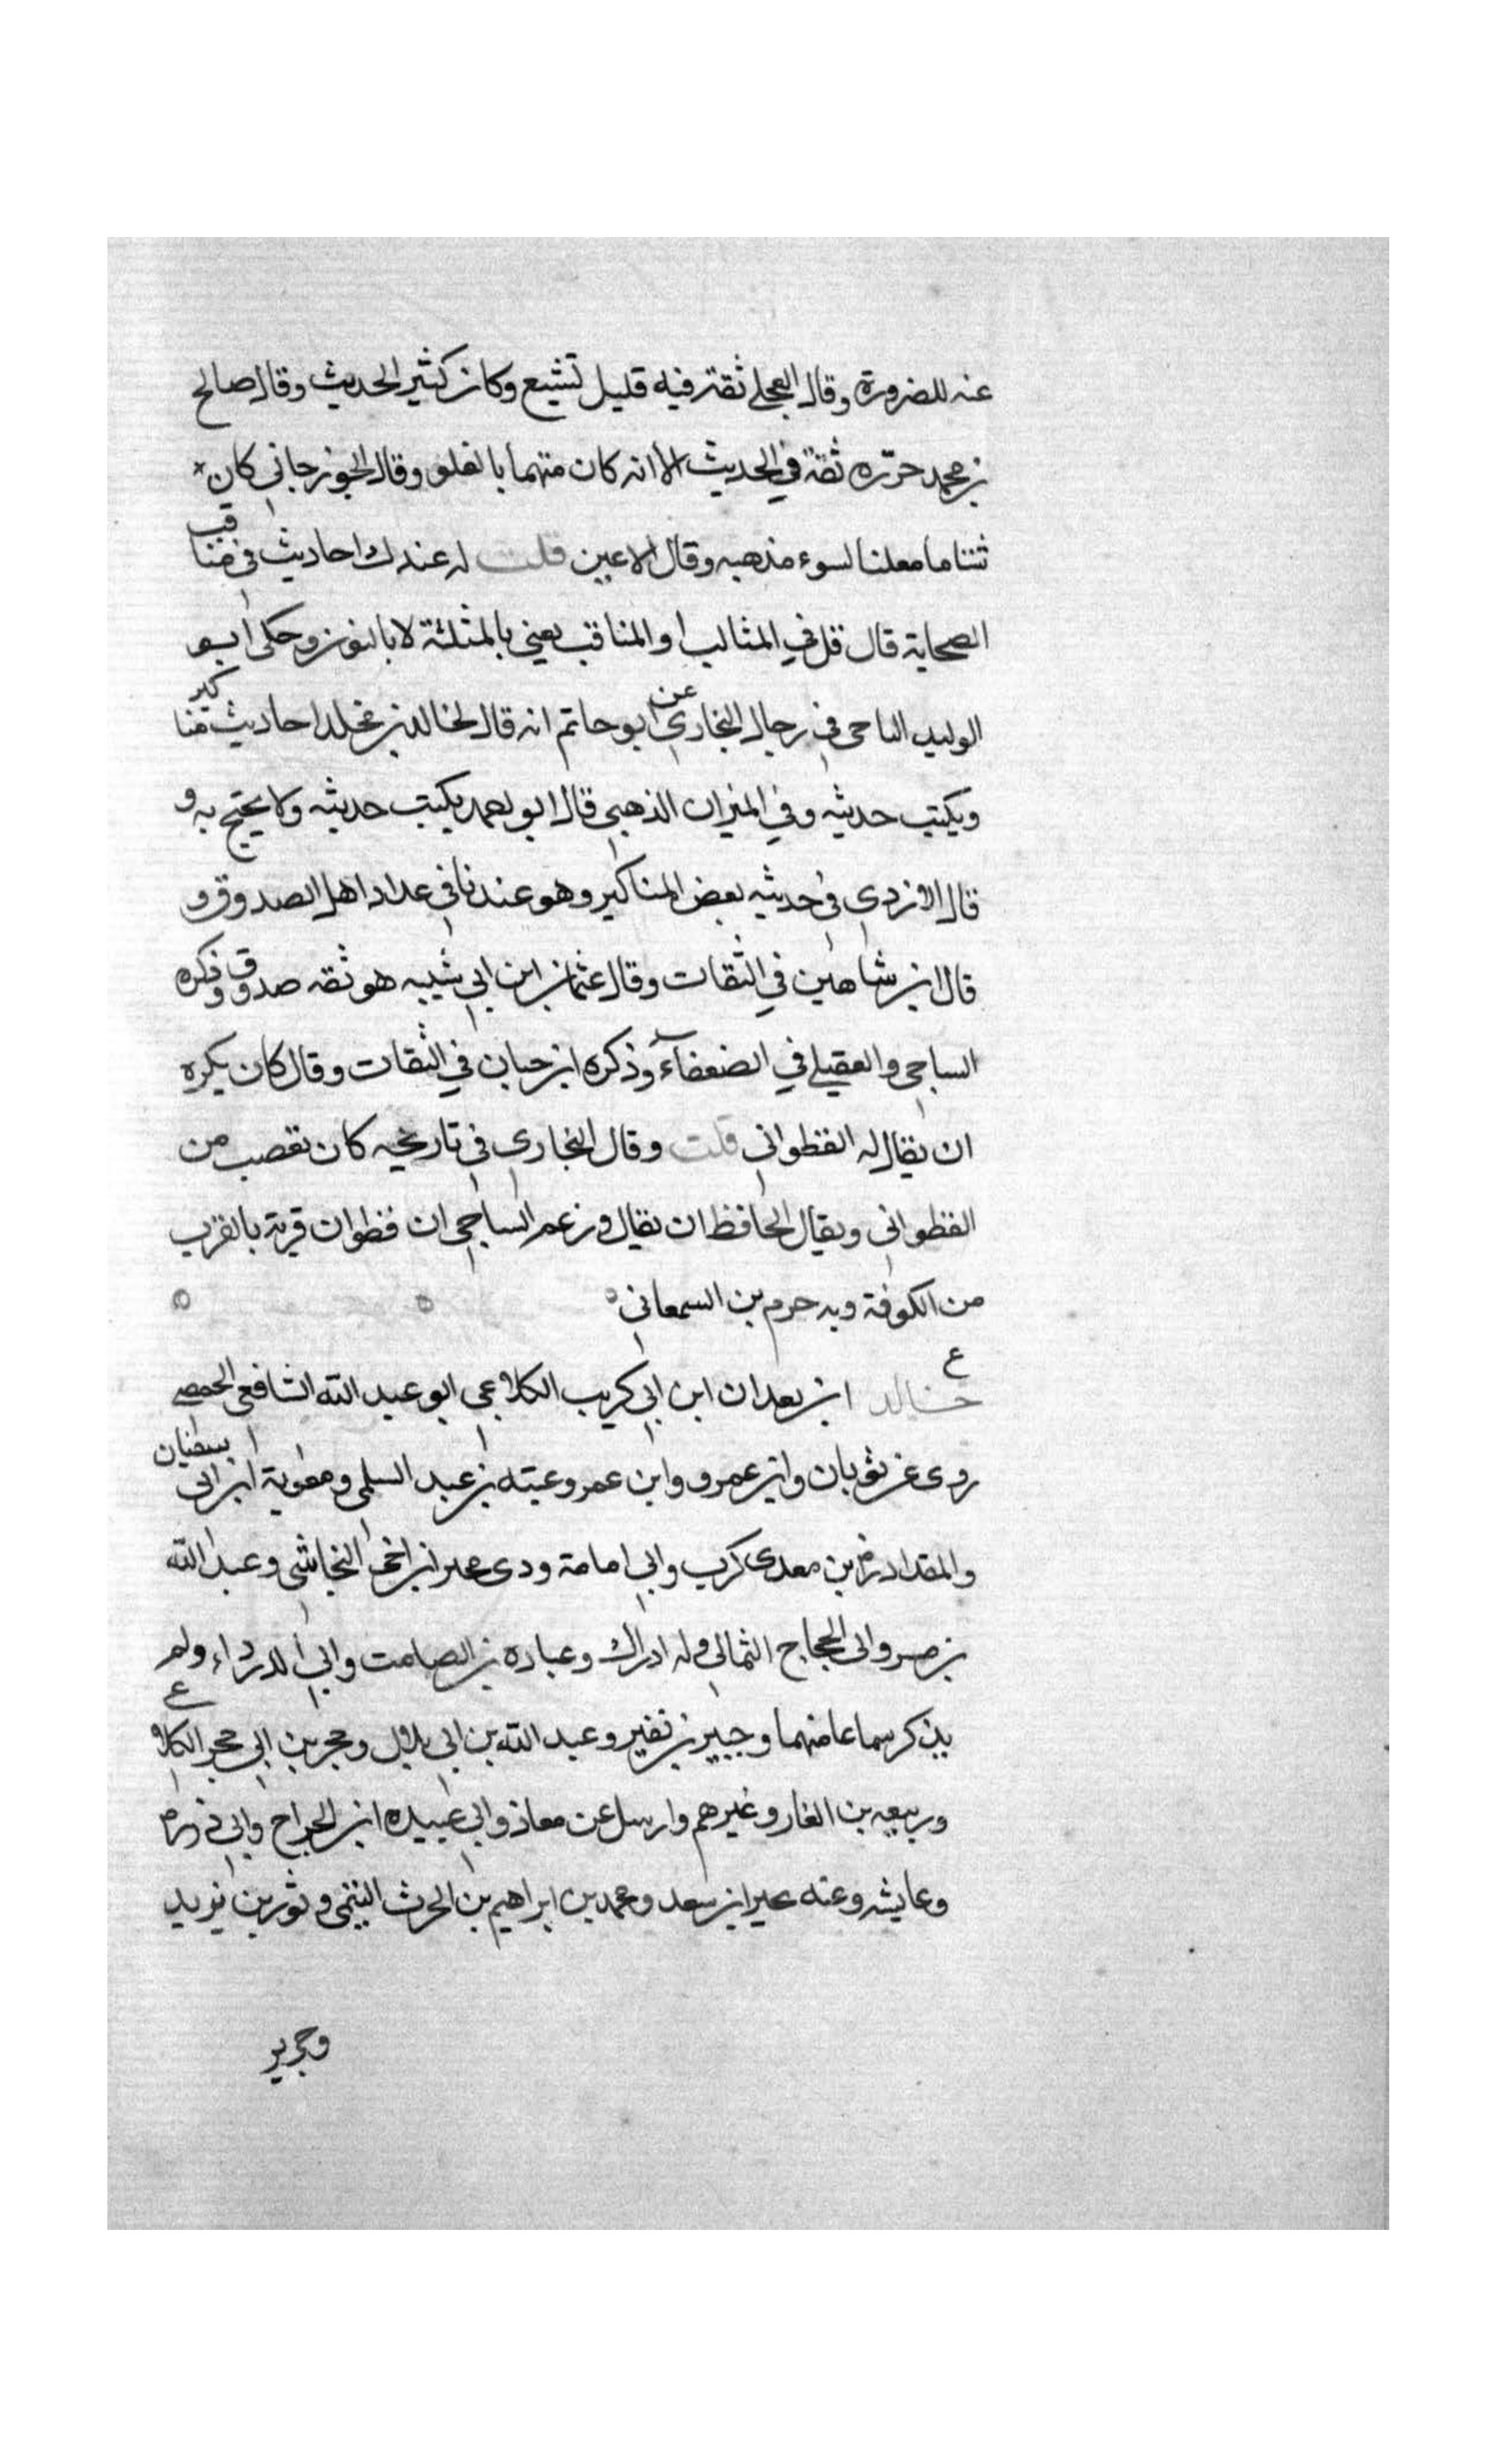 عنه للضرورة وقال العجلي ثقة فيه قليل تشيع وكان كثير الحديث وقال صالح
بن محمد حزره ثقة في الحديث الا انه كان متهما بالغلو وقال الجوزجاني كان
شتاما معلنا لسوء مذهبه وقال الاعين قلت له عندك احاديث في مناقب
الصحابة قال قل في المثالب او المناقب يعني بالمثلثة لا بالنون وحكى ابو
الوليد الباجي في رجال البخاري عن ابو حاتم انه قال لخالد بن مخلد احاديث مناكير
ويكتب حديثه وفي الميزان الذهبي قال ابو احمد يكتب حديثه ولا يحتج به و
قال الازدي في حديثه بعض المناكير وهو عندنا في عداد اهل الصدوق و
قال ابن شاهين في الثقات وقال عثمان ابن ابي شيبه هو ثقه صدوق وذكره
الساجي والعقيلي في الضعفاء وذكره ابن حبان في الثقات وقال كان يكره
ان يقال له القطواني قلت وقال البخاري في تاريخه كان يغضب من
القطواني ويقال الحافظ ان يقال وزعم الساجي ان قطوان قرية بالقرب
من الكوفة وبه حرم بن السمعاني
ع
خالد ابن بعدان ابن ابي كريب الكلاعي ابو عبد الله الشافعي الحمصي
روى عن ثوبان وابن عمرو وابن عمر وعتبه بن عبد السلمى ومعوية ابن ابى سفيان
والمقدادم بن معدى كرب وابي امامة وذى مخبر ابن اخى النجاشى وعبد الله
بن بسر وابى الحجاج الثمالي وله ادراك وعباده بن الصامت وابي الدرداء ولم
يذكر سماعا منهما وجبير بن نفير وعبد الله بن ابى بلال وحجر بن ابي حجر الكلاع
وربيعه بن الغار وغيرهم وارسل عن معاذ وابي عبيده ابن الجراح وابي ذر
وعايشه وعنه بحير ابن سعد ومحمد بن ابراهيم بن الحرث التيمى وثور بن يزيد
وجرير